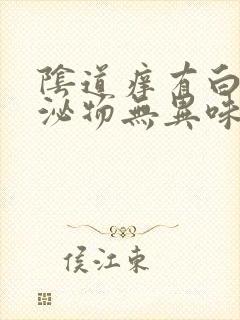 陰道痒有白
泌物無異味
侯江東